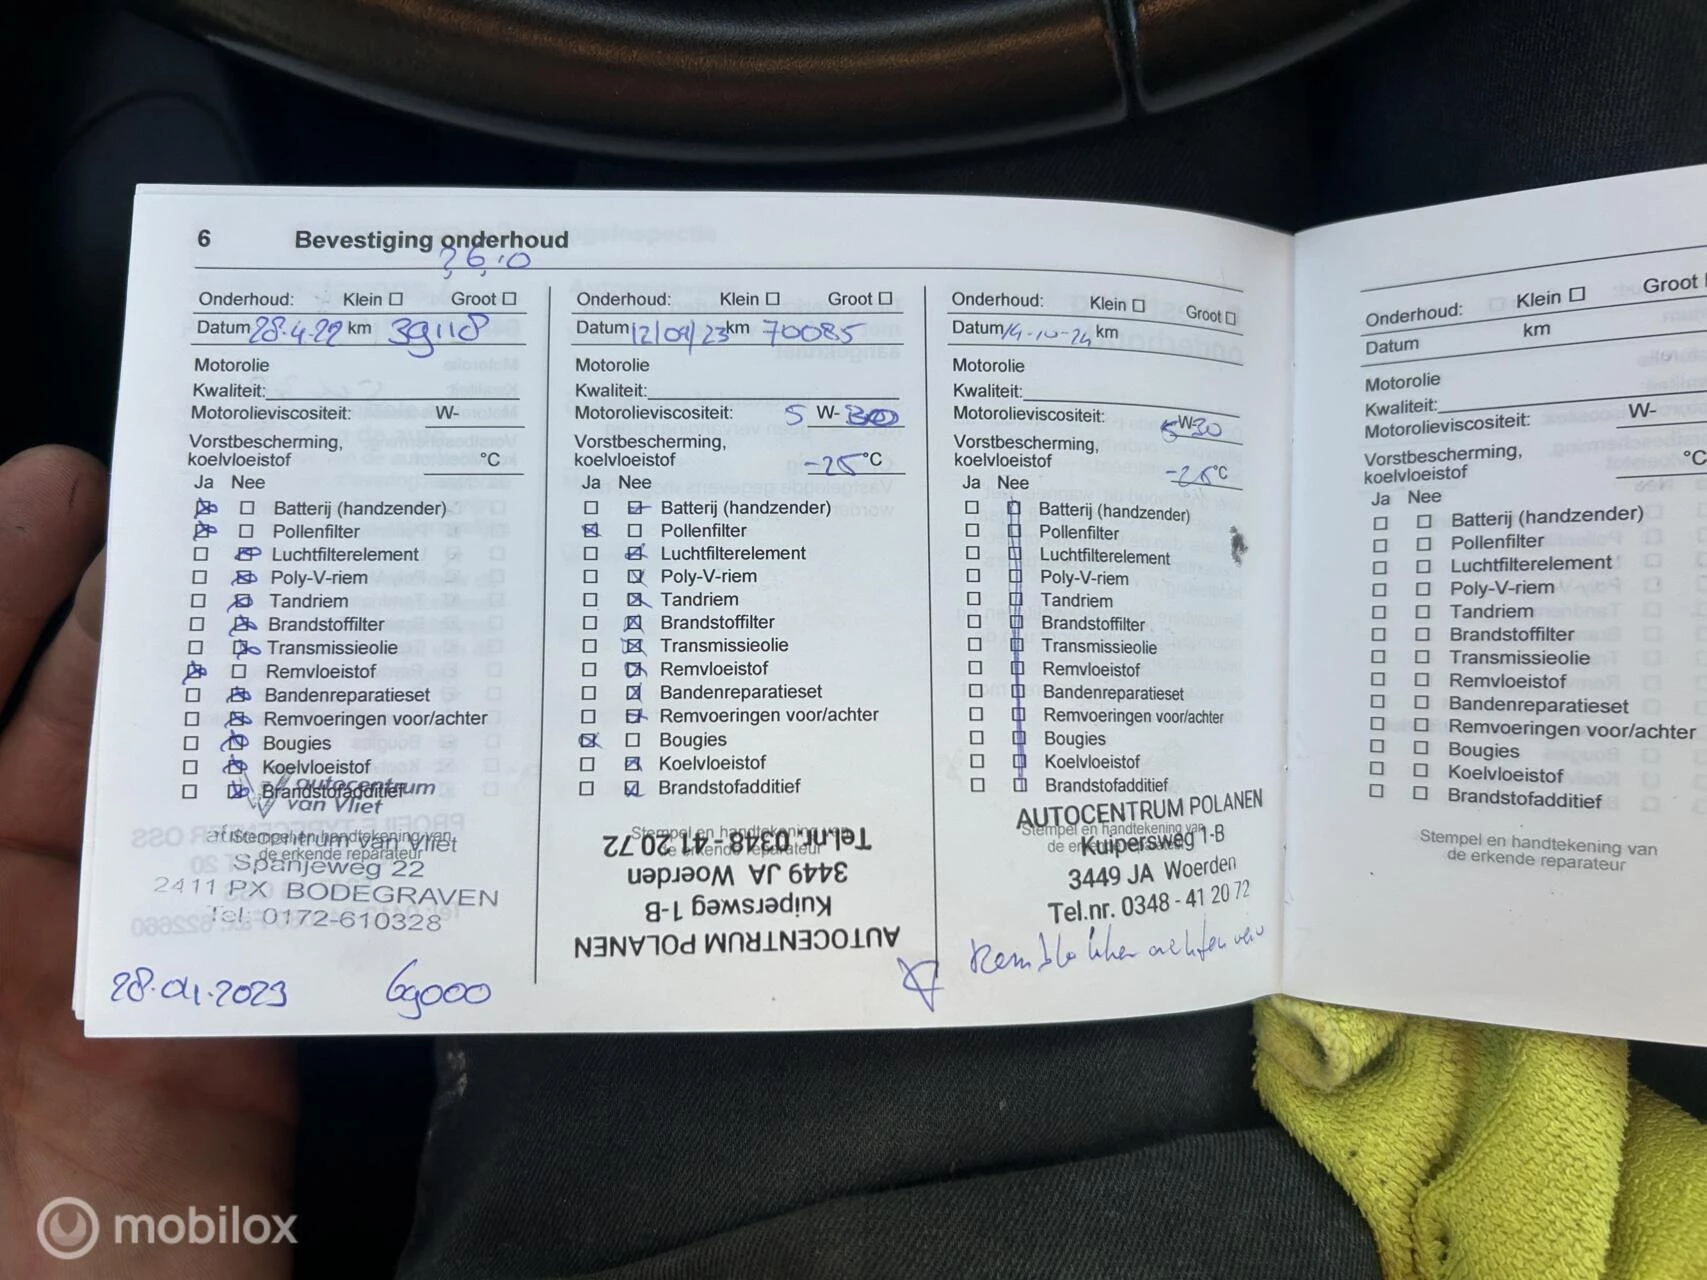 6 Bevestiging onderhoud
Onderhoud: Klein Groot
Datum 28.4.22 km 39118
Motorolie
Kwaliteit:
Motorolieviscositeit: W-
Vorstbescherming,
koelvloeistof °C
Ja Nee
Batterij (handzender)
Pollenfilter
Luchtfilterelement
Poly-V-riem
Tandriem
Brandstoffilter
Transmissieolie
Remvloeistof
Bandenreparatieset
Remvoeringen voor/achter
Bougies
Koelvloeistof
Brandstofadditief
autocentrum
van Vliet
Stempel en handtekening van
de erkende reparateur
autocentrum van Vliet
Spanjeweg 22
2411 PX BODEGRAVEN
Tel: 0172-610328
28.04.2023 69000
Onderhoud: Klein Groot
Datum 12/09/23 km 70085
Motorolie
Kwaliteit:
Motorolieviscositeit: 5 W-30
Vorstbescherming,
koelvloeistof -25 °C
Ja Nee
Batterij (handzender)
Pollenfilter
Luchtfilterelement
Poly-V-riem
Tandriem
Brandstoffilter
Transmissieolie
Remvloeistof
Bandenreparatieset
Remvoeringen voor/achter
Bougies
Koelvloeistof
Brandstofadditief
Stempel en handtekening van
de erkende reparateur
AUTOCENTRUM POLANEN
Kuipersweg 1-B
3449 JA Woerden
Tel.nr. 0348 - 41 20 72
Onderhoud: Klein Groot
Datum 14-10-24 km
Motorolie
Kwaliteit:
Motorolieviscositeit: 5 W-30
Vorstbescherming,
koelvloeistof -25 °C
Ja Nee
Batterij (handzender)
Pollenfilter
Luchtfilterelement
Poly-V-riem
Tandriem
Brandstoffilter
Transmissieolie
Remvloeistof
Bandenreparatieset
Remvoeringen voor/achter
Bougies
Koelvloeistof
Brandstofadditief
Stempel en handtekening van
de erkende reparateur
AUTOCENTRUM POLANEN
Kuipersweg 1-B
3449 JA Woerden
Tel.nr. 0348 - 41 20 72
Onderhoud: Klein Groot
Datum km
Motorolie
Kwaliteit:
Motorolieviscositeit: W-
Vorstbescherming,
koelvloeistof °C
Ja Nee
Batterij (handzender)
Pollenfilter
Luchtfilterelement
Poly-V-riem
Tandriem
Brandstoffilter
Transmissieolie
Remvloeistof
Bandenreparatieset
Remvoeringen voor/achter
Bougies
Koelvloeistof
Brandstofadditief
Stempel en handtekening van
de erkende reparateur
mobilox